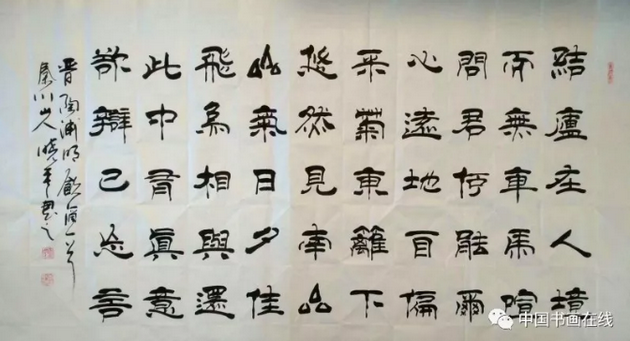 結廬在人境
而無車馬喧
問君何能爾
心遠地自偏
采菊東籬下
悠然見南山
山氣日夕佳
飛鳥相與還
此中有眞意
欲辯已忘言
晋陶淵明
秦川山人曉平書之
中国书画在线